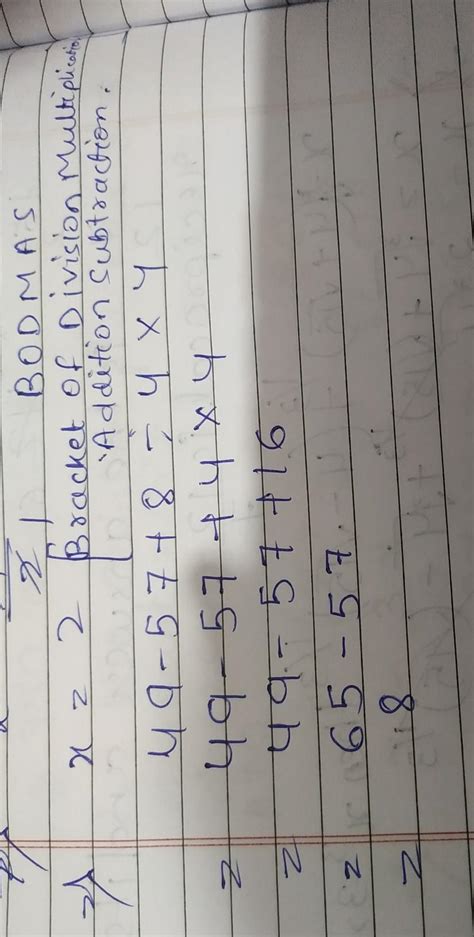 BODMAS
x = 2 [Bracket of Division Multiplication
Addition Subtraction.
49 - 57 + 8 ÷ 4 × 4
= 49 - 57 + 4 × 4
= 49 - 57 + 16
= 65 - 57
= 8